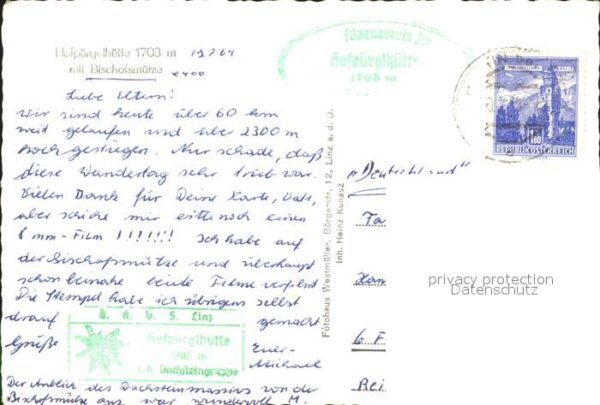 Hofpürgelhütte 1703 m 19.7.64
mit Bischofsmütze
2400
Liebe Eltern!
Wir sind heute über 60 km
weit gelaufen und über 2300 m
hoch gestiegen. Nur schade, daß
diese Wandertag sehr trüb war.
Vielen Dank für Deine Karte, Vati,
aber schicke mir bitte noch einen
8 mm-Film !!!!!!! Ich habe auf
der Bischofsmütze und überhaupt
schon beinahe beide Filme verfilmt
Die Stempel habe ich übrigens selbst
drauf gemacht
Grüße Euer
Michael
Der Anblick des Dachsteinmassivs von der
Bischofsmütze aus war wundervoll M.
Ö. A. V. S. Linz
Hofpürglhütte
1705 m
Dachsteingruppe
Alpenverein
Hofpürglhütte
1705 m
Fotohaus Westmüller, Bürgerstr. 12, Linz a. d. D.
Inh. Heinz Kunasz
1.80
REPUBLIK ÖSTERREICH
"Deutschland"
Fa
Han
6 F
Rei
privacy protection
Datenschutz